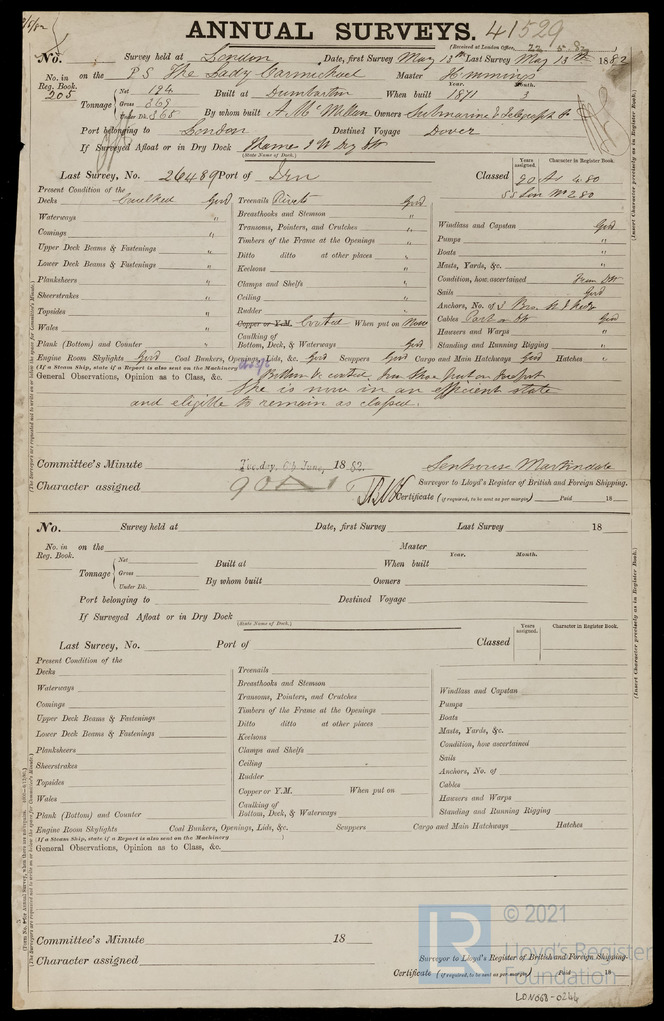 ANNUAL SURVEYS. 41529
(Received at London Office, 22 5 82)
No. Survey held at London Date, first Survey May 13th Last Survey May 13th 1882
No. in Reg. Book. 205 on the P S The Lady Carmichael Master Hemmings
Tonnage { Net 194 Gross 369 Under Dk. 365 Built at Dumbarton When built Year. 1871 Month. 3
By whom built A. McMillan Owners Submarine & Telegraph Co
Port belonging to London Destined Voyage Dover
If Surveyed Afloat or in Dry Dock Thames I W Dry Dk
(State Name of Dock.)
Last Survey, No. 26489 Port of Lon Classed Years assigned. Character in Register Book.
90 A1 4.80
SS Lon No 2 80
Present Condition of the
Decks Caulked Good Treenails Rivets Good
Waterways " Breasthooks and Stemson " Windlass and Capstan Good
Comings " Transoms, Pointers, and Crutches " Pumps "
Upper Deck Beams & Fastenings " Timbers of the Frame at the Openings " Boats "
Lower Deck Beams & Fastenings " Ditto ditto at other places " Masts, Yards, &c. "
Keelsons " Condition, how ascertained From Dk
Planksheers " Clamps and Shelfs " Sails Good
Sheerstrakes " Ceiling " Anchors, No. of 3
Topsides " Rudder " Cables Part on Dk Good
Wales " Copper or Y.M. Coated When put on Now Hawsers and Warps "
Plank (Bottom) and Counter " Caulking of Bottom, Deck, & Waterways Good Standing and Running Rigging "
Engine Room Skylights Good Coal Bunkers, Openings, Lids, &c. Good Scuppers Good Cargo and Main Hatchways Good Hatches "
(If a Steam Ship, state if a Report is also sent on the Machinery
General Observations, Opinion as to Class, &c.
She is now in an efficient state
and eligible to remain as classed.
Committee's Minute Tuesday, 6th June, 1882.
Character assigned 90 A1
Senhouse Martindale
Surveyor to Lloyd's Register of British and Foreign Shipping.
Certificate (if required, to be sent as per margin) Paid 18
(Insert Character precisely as in Register Book.)
No. Survey held at Date, first Survey Last Survey 18
No. in Reg. Book. on the Master
Tonnage { Net Gross Under Dk. Built at When built Year. Month.
By whom built Owners
Port belonging to Destined Voyage
If Surveyed Afloat or in Dry Dock
(State Name of Dock.)
Last Survey, No. Port of Classed Years assigned. Character in Register Book.
Present Condition of the
Decks Treenails
Waterways Breasthooks and Stemson Windlass and Capstan
Comings Transoms, Pointers, and Crutches Pumps
Upper Deck Beams & Fastenings Timbers of the Frame at the Openings Boats
Lower Deck Beams & Fastenings Ditto ditto at other places Masts, Yards, &c.
Keelsons Condition, how ascertained
Planksheers Clamps and Shelfs Sails
Sheerstrakes Ceiling Anchors, No. of
Topsides Rudder Cables
Wales Copper or Y.M. When put on Hawsers and Warps
Plank (Bottom) and Counter Caulking of Bottom, Deck, & Waterways Standing and Running Rigging
Engine Room Skylights Coal Bunkers, Openings, Lids, &c. Scuppers Cargo and Main Hatchways Hatches
(If a Steam Ship, state if a Report is also sent on the Machinery )
General Observations, Opinion as to Class, &c.
Committee's Minute 18
Character assigned
Surveyor to Lloyd's Register of British and Foreign Shipping.
Certificate (if required, to be sent as per margin) Paid 18
(Insert Character precisely as in Register Book.)
LR © 2021
Lloyd's Register
Foundation
LON068-0266